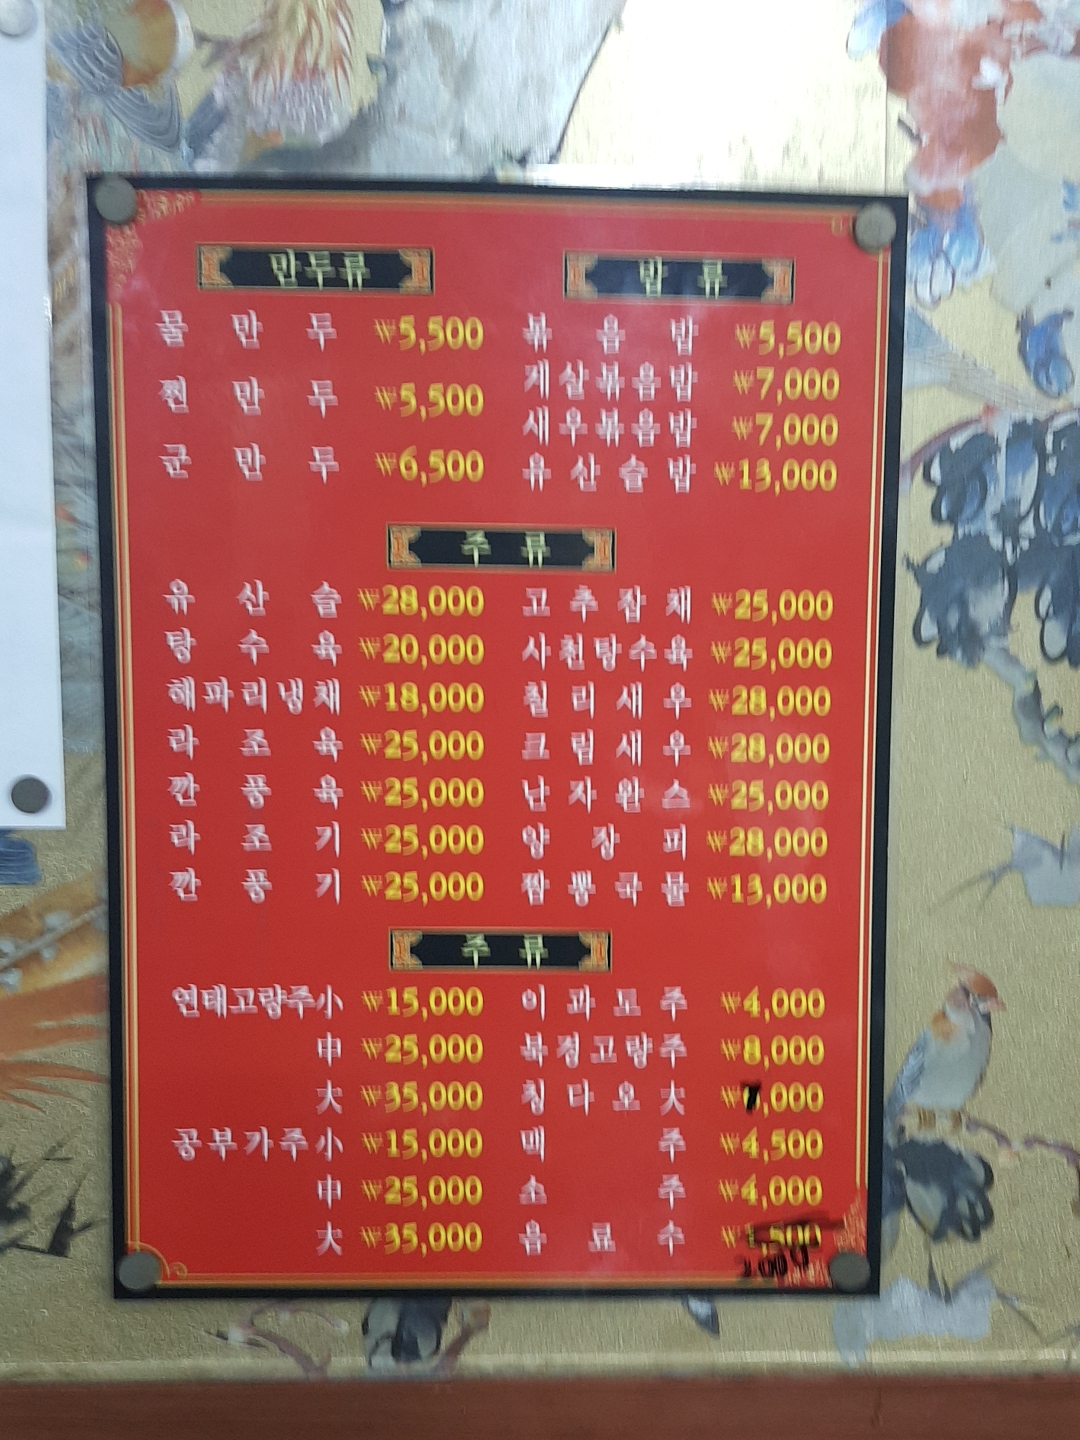 만두류
물만두 ₩5,500
찐만두 ₩5,500
군만두 ₩6,500
밥류
볶음밥 ₩5,500
게살볶음밥 ₩7,000
새우볶음밥 ₩7,000
유산슬밥 ₩13,000
주류
유산슬 ₩28,000
탕수육 ₩20,000
해파리냉채 ₩18,000
라조육 ₩25,000
깐풍육 ₩25,000
라조기 ₩25,000
깐풍기 ₩25,000
고추잡채 ₩25,000
사천탕수육 ₩25,000
칠리새우 ₩28,000
크림새우 ₩28,000
난자완스 ₩25,000
양장피 ₩28,000
짬뽕국물 ₩13,000
주류
연태고량주小 ₩15,000
中 ₩25,000
大 ₩35,000
공부가주小 ₩15,000
中 ₩25,000
大 ₩35,000
이과도주 ₩4,000
북경고량주 ₩8,000
칭다오大 ₩7,000
맥주 ₩4,500
소주 ₩4,000
음료수